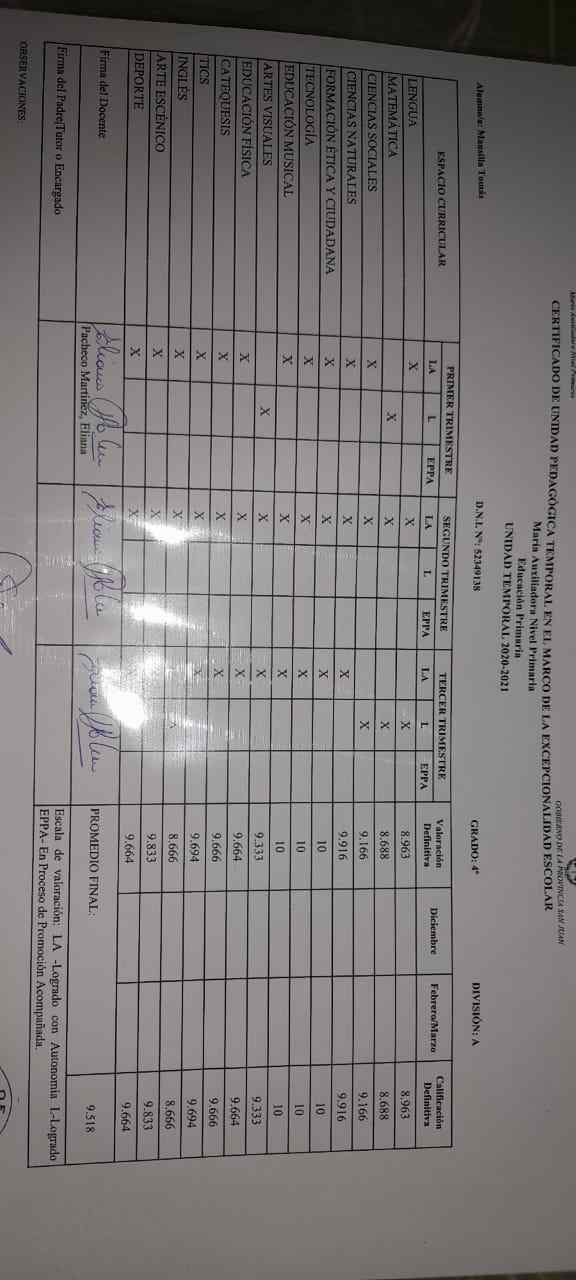 María Auxiliadora Nivel Primario
GOBIERNO DE LA PROVINCIA SAN JUAN
CERTIFICADO DE UNIDAD PEDAGÓGICA TEMPORAL EN EL MARCO DE LA EXCEPCIONALIDAD ESCOLAR
María Auxiliadora Nivel Primaria
Educación Primaria
UNIDAD TEMPORAL 2020-2021
Alumno/a: Mansilla Tomás D.N.I. Nº: 52349138 GRADO: 4° DIVISIÓN: A
ESPACIO CURRICULAR PRIMER TRIMESTRE SEGUNDO TRIMESTRE TERCER TRIMESTRE Valoración Definitiva Diciembre Febrero/Marzo Calificación Definitiva
LA L EPPA LA L EPPA LA L EPPA
LENGUA X X X 8.963 8.963
MATEMÁTICA X X X 8.688 8.688
CIENCIAS SOCIALES X X X 9.166 9.166
CIENCIAS NATURALES X X X 9.916 9.916
FORMACIÓN ÉTICA Y CIUDADANA X X X 10 10
TECNOLOGÍA X X X 10 10
EDUCACIÓN MUSICAL X X X 10 10
ARTES VISUALES X X X 9.333 9.333
EDUCACIÓN FÍSICA X X X 9.664 9.664
CATEQUESIS X X X 9.666 9.666
TICS X X X 9.694 9.694
INGLÉS X X X 8.666 8.666
ARTE ESCÉNICO X X 9.833 9.833
DEPORTE X X 9.664 9.664
Firma del Docente Pacheco Martinez, Eliana PROMEDIO FINAL: 9.518
Firma del Padre/Tutor o Encargado
Escala de valoración: LA -Logrado con Autonomía L-Logrado
EPPA- En Proceso de Promoción Acompañada.
OBSERVACIONES: